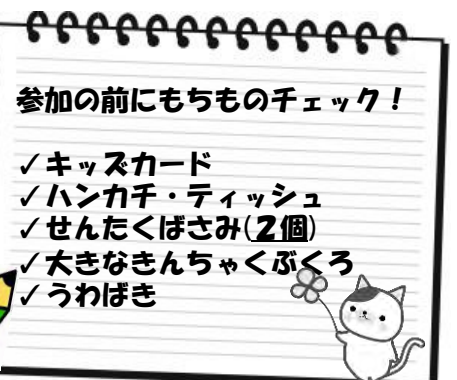 参加の前にもちものチェック！
✓キッズカード
✓ハンカチ・ティッシュ
✓せんたくばさみ(２個)
✓大きなきんちゃくぶくろ
✓うわばき